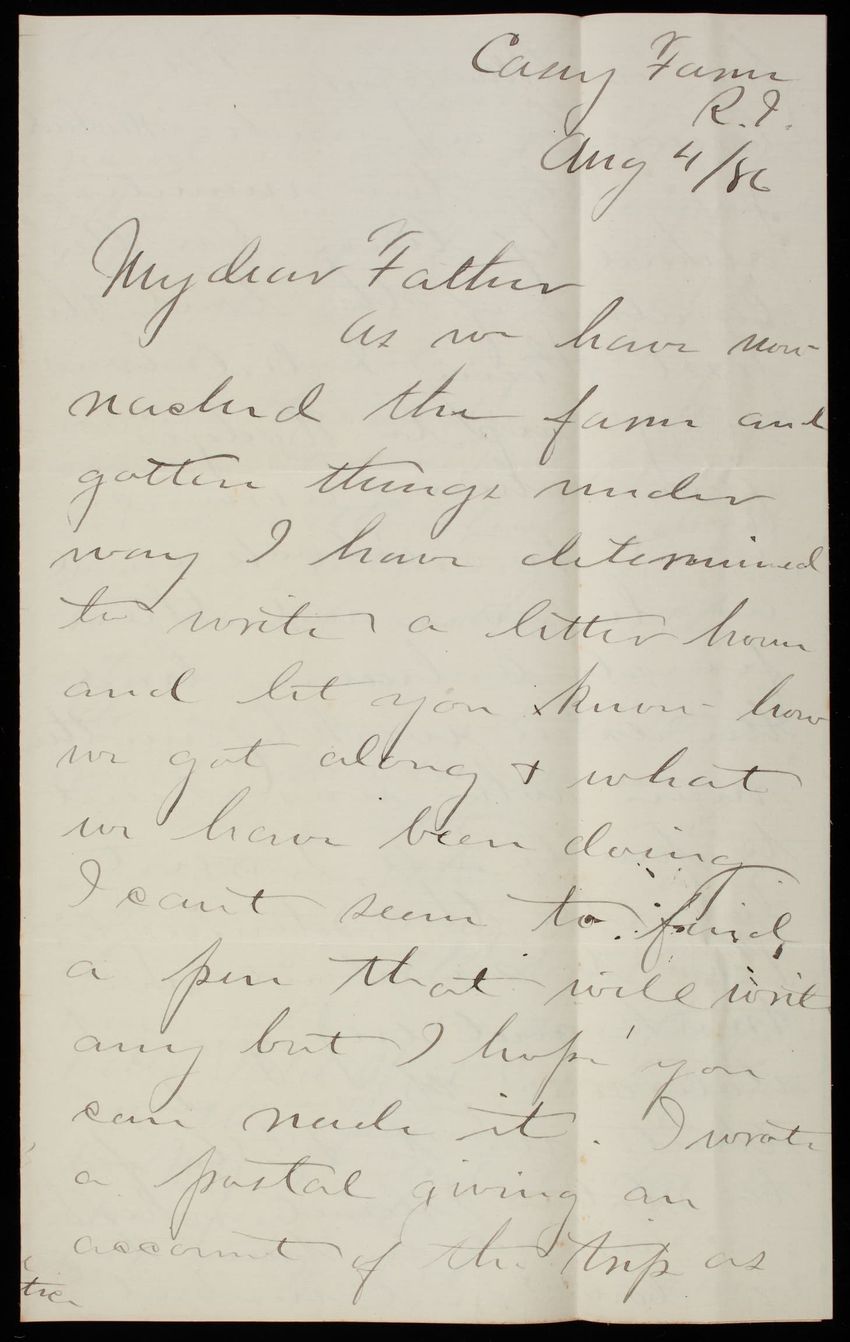 Casey Farm
R.I.
Aug 4/86
My dear Father
As we have now
reached the farm and
gotten things under
way I have determined
to write a letter home
and let you know how
we got along + what
we have been doing
I can't seem to find
a pen that will write
any but I hope you
can read it. I wrote
a postal giving an
account of the trip as